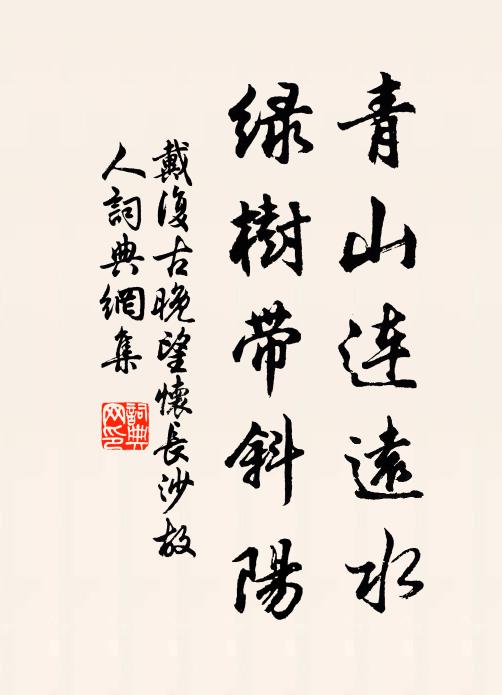 青山连遠水
绿樹帶斜陽
戴復古晚望懷長沙故
人詞典網集
詞典网印